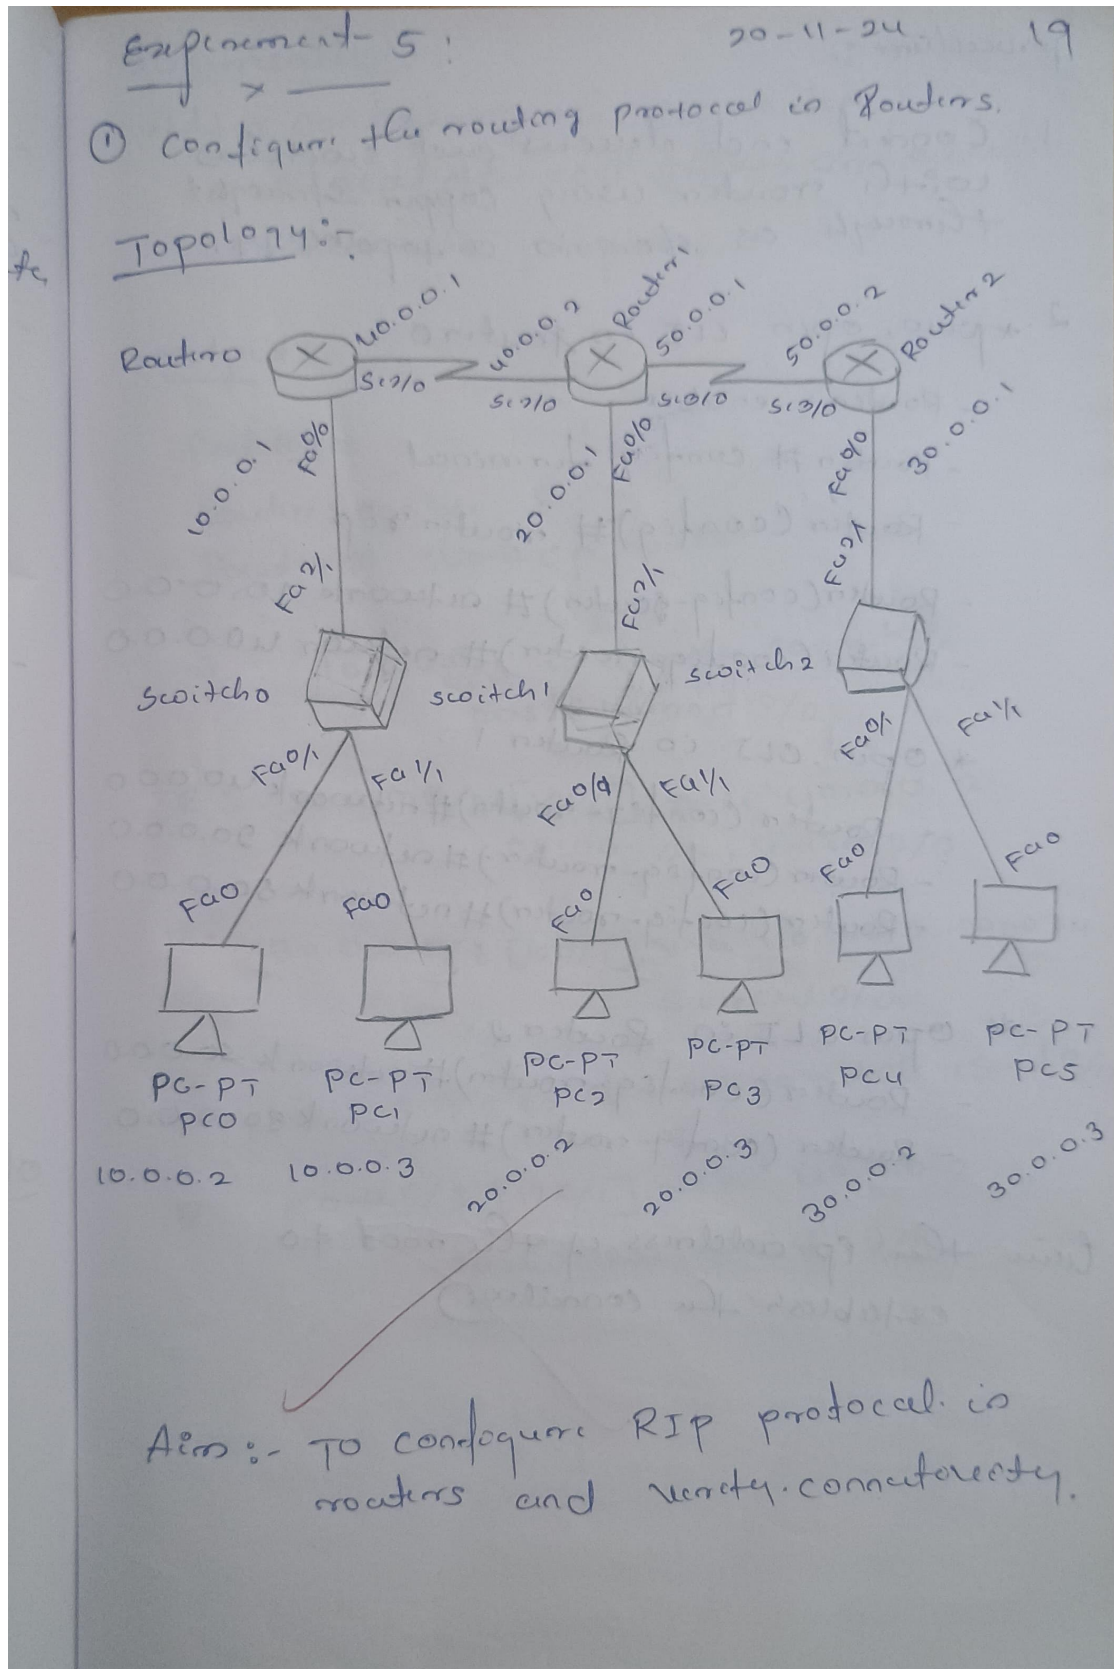 Experement- 5:
20-11-24
19
① Configure the routing protocol in Routers.
Topology:-
Router0
40.0.0.1
Se2/0
40.0.0.2
Se2/0
Router1
50.0.0.1
Se3/0
50.0.0.2
Se3/0
Router2
10.0.0.1
Fa0/0
20.0.0.1
Fa0/0
Fa0/0
30.0.0.1
Fa2/1
Fa2/1
Fa2/1
Switch0
Switch1
Switch2
Fa0/1
Fa1/1
Fa0/1
Fa1/1
Fa0/1
Fa1/1
Fa0
Fa0
Fa0
Fa0
Fa0
Fa0
PC-PT
PC0
PC-PT
PC1
PC-PT
PC2
PC-PT
PC3
PC-PT
PC4
PC-PT
PC5
10.0.0.2
10.0.0.3
20.0.0.2
20.0.0.3
30.0.0.2
30.0.0.3
Aim:- To configure RIP protocal in
routers and verety connectivity.